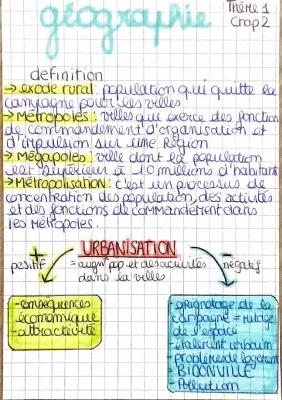 géographie
Thème 1
Chap 2
définition
→ exode rural : population qui quitte la
campagne pour les villes.
→ Métropoles : villes qui exerce des fonction
de commandement d'organisation et
d'impulsion sur une Région
→ Mégapoles : ville dont la population
est supérieur à 10 millions d'habitants
→ Métropolisation : c'est un processus de
concentration des population, des activités
et des fonctions de commandement dans
les Métropoles.
+
URBANISATION
-
positif
= augm° pop et des activités
dans la villes
négatif
- conséquences
économique
- attractivité
- grignotage de la
campagne = mitage
de l'espace
- étalement urbain
- problème de logement
- BIDONVILLE
- Pollution